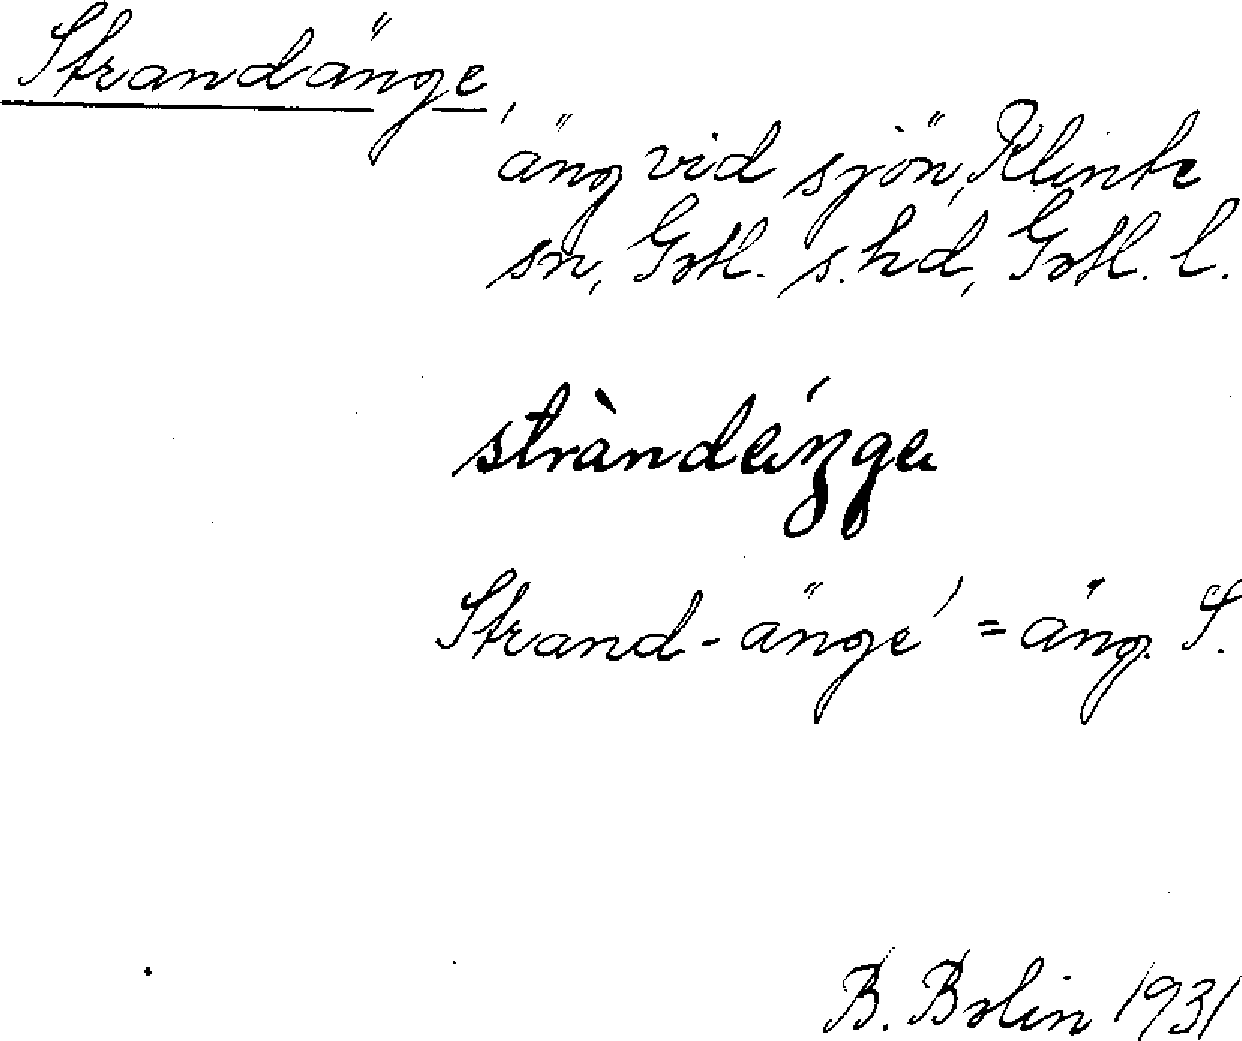 Strandänge,
äng vid sjön, Klinte
sn, Gotl. s. hd, Gotl. l.
stràndéŋge
Strand-änge' = äng. S.
B. Bolin 1931